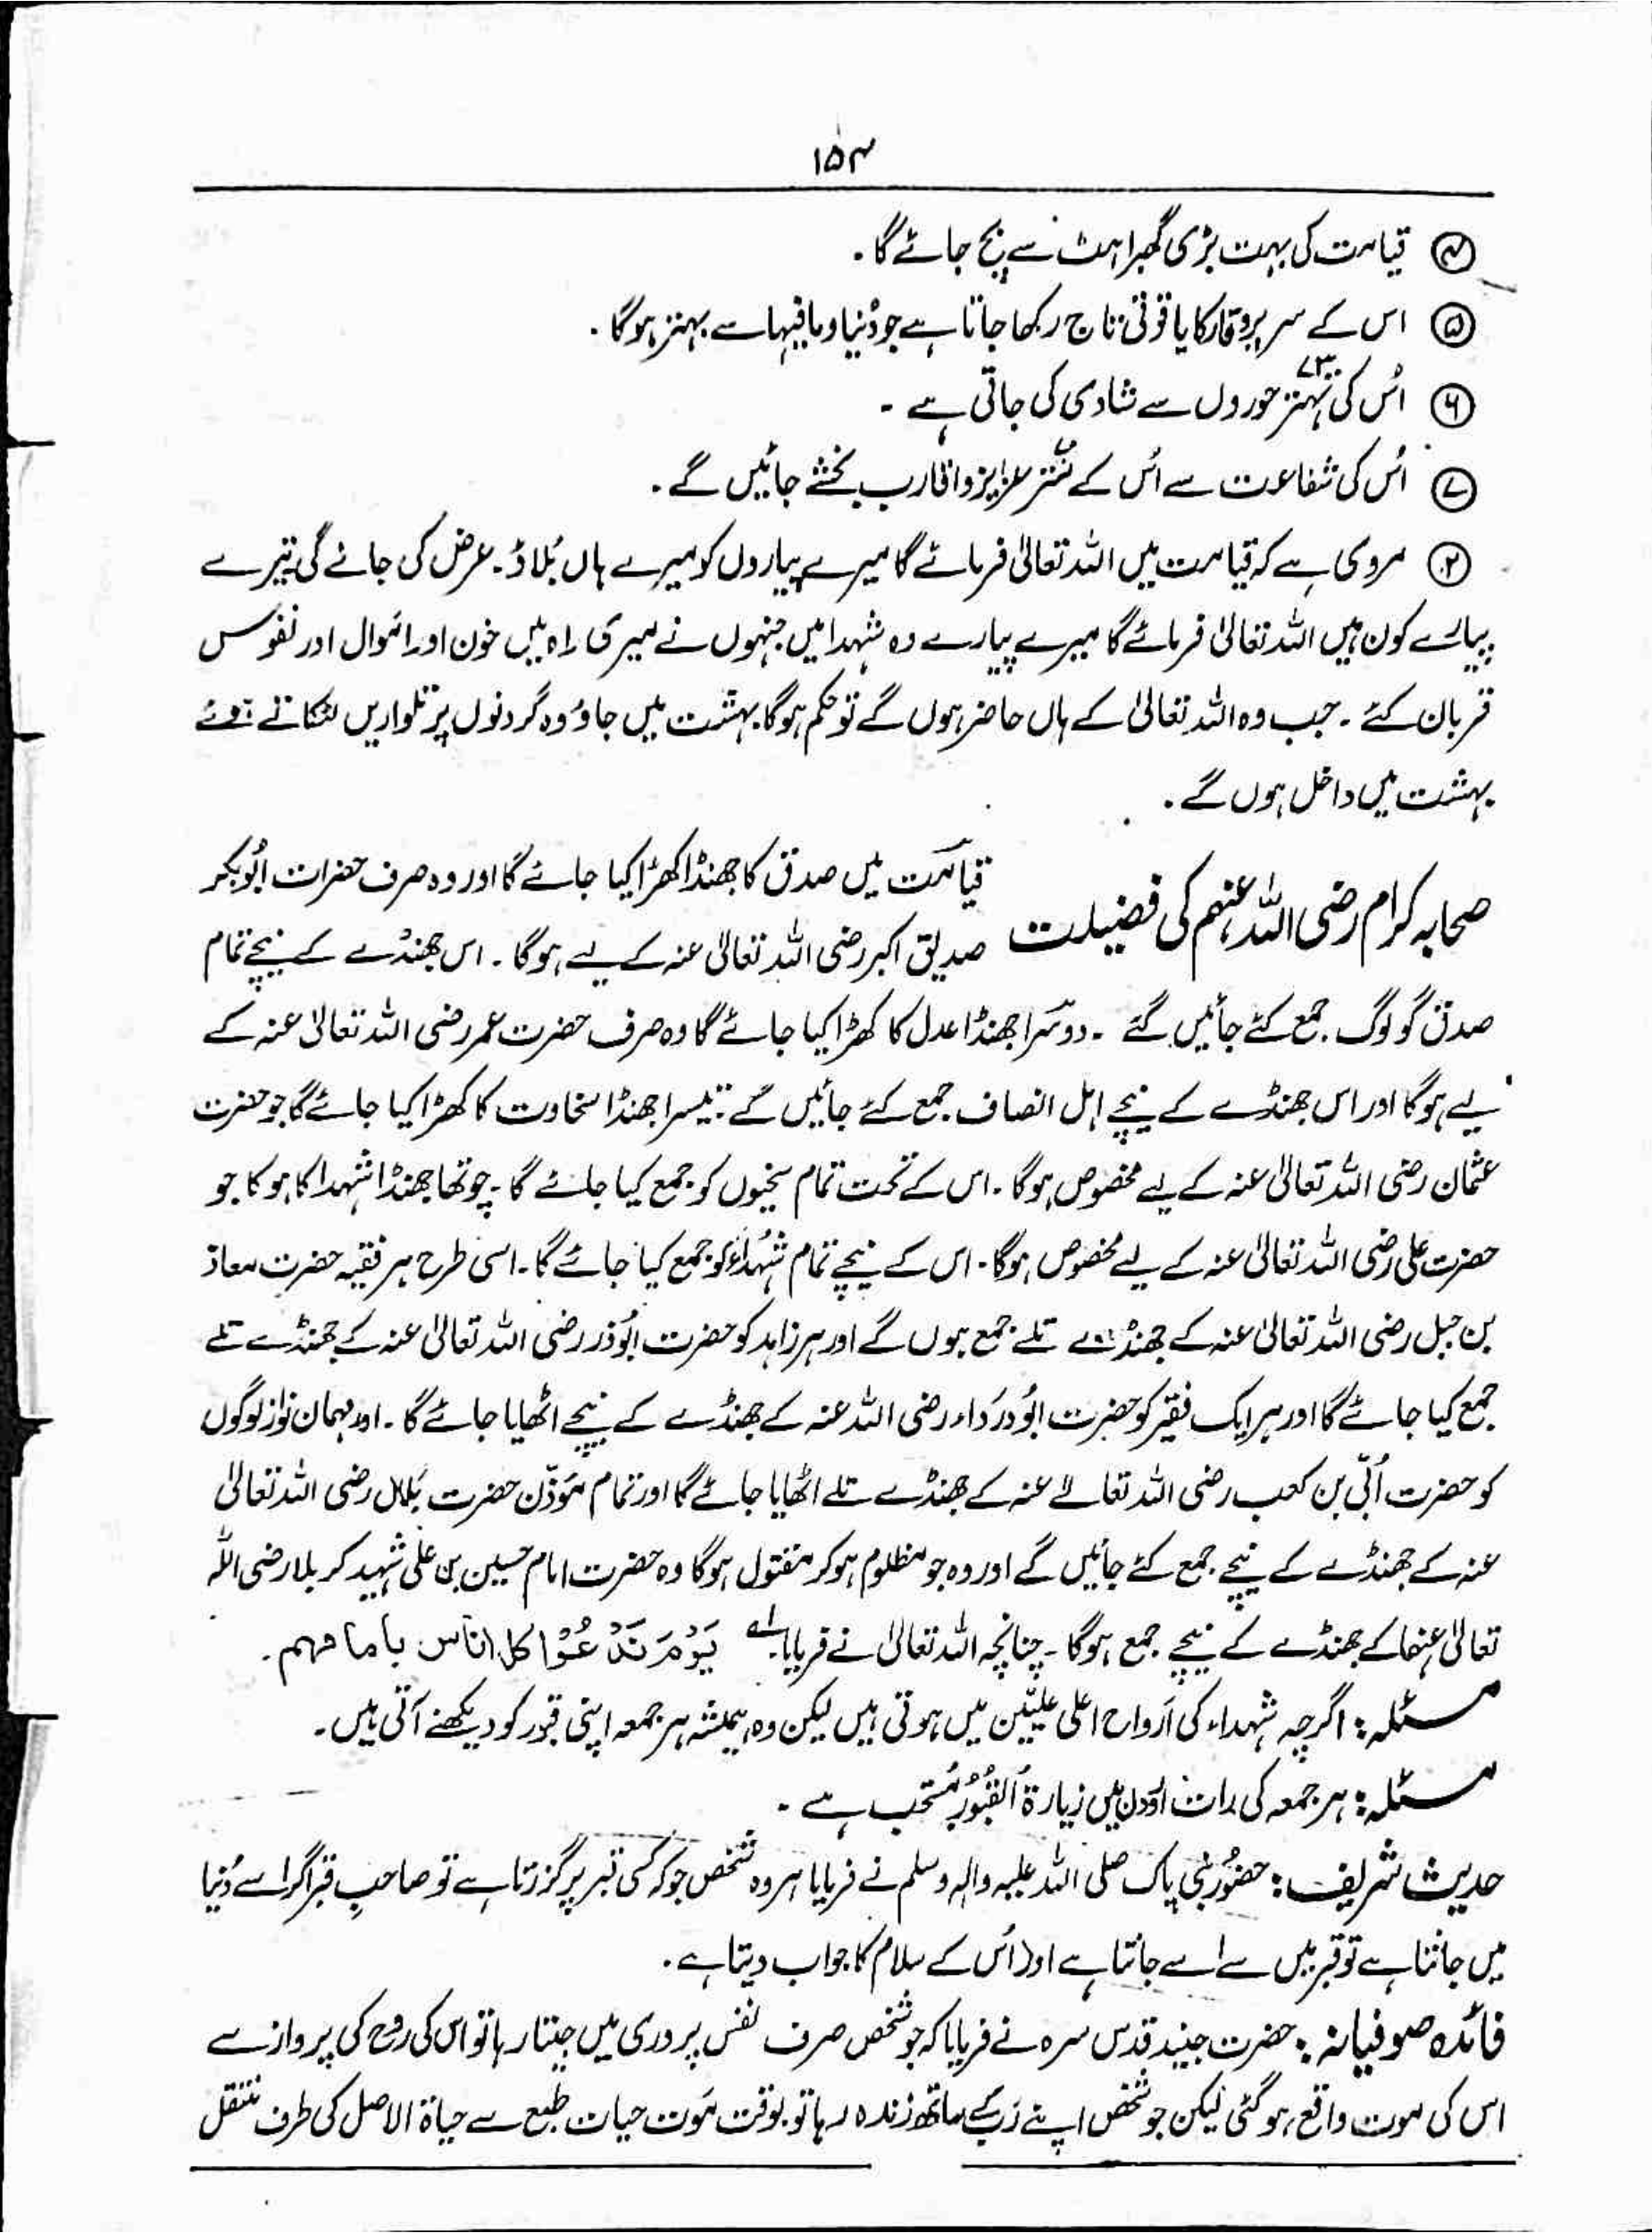 ۱۵۴
④ قیامت کی بہت بڑی گھبراہٹ سے بچ جائے گا۔
⑤ اس کے سر پر وقار کا یاقوتی تاج رکھا جاتا ہے جو دُنیا و مافیہا سے بہتر ہوگا۔
⑥ اُس کی بہتر حوروں سے شادی کی جاتی ہے۔
⑦ اُس کی شفاعت سے اُس کے ستّر عزیز و اقارب بخشے جائیں گے۔
② مروی ہے کہ قیامت میں اللہ تعالیٰ فرمائے گا میرے پیاروں کو میرے ہاں بُلاؤ۔ عرض کی جائے گی تیرے
پیارے کون ہیں اللہ تعالیٰ فرمائے گا میرے پیارے وہ شہدا ہیں جنہوں نے میری راہ میں خون اور اموال اور نفوس
قربان کئے۔ جب وہ اللہ تعالیٰ کے ہاں حاضر ہوں گے تو حکم ہوگا بہشت میں جاؤ وہ گردنوں پر تلواریں لٹکاتے ہوئے
بہشت میں داخل ہوں گے۔
صحابہ کرام رضی اللہ عنہم کی فضیلت
قیامت میں صدق کا جھنڈا کھڑا کیا جائے گا اور وہ صرف حضرات ابُوبکر
صدیق اکبر رضی اللہ تعالیٰ عنہ کے لیے ہوگا۔ اس جھنڈے کے نیچے تمام
صدق گو لوگ جمع کئے جائیں گے۔ دوسرا جھنڈا عدل کا کھڑا کیا جائے گا وہ صرف حضرت عمر رضی اللہ تعالیٰ عنہ کے
لیے ہوگا اور اس جھنڈے کے نیچے اہل انصاف جمع کئے جائیں گے تیسرا جھنڈا سخاوت کا کھڑا کیا جائے گا جو حضرت
عثمان رضی اللہ تعالیٰ عنہ کے لیے مخصوص ہوگا۔ اس کے تحت تمام سخیوں کو جمع کیا جائے گا۔ چوتھا جھنڈا شہدا کا ہوگا جو
حضرت علی رضی اللہ تعالیٰ عنہ کے لیے مخصوص ہوگا۔ اس کے نیچے تمام شہُداء کو جمع کیا جائے گا۔ اسی طرح ہر فقیہ حضرت معاذ
بن جبل رضی اللہ تعالیٰ عنہ کے جھنڈے تلے جمع ہوں گے اور ہر زاہد کو حضرت ابُوذر رضی اللہ تعالیٰ عنہ کے جھنڈے تلے
جمع کیا جائے گا اور ہر ایک فقیر کو حضرت ابُودرداء رضی اللہ عنہ کے جھنڈے کے نیچے اٹھایا جائے گا۔ اور مہمان نواز لوگوں
کو حضرت اُبَیّ بن کعب رضی اللہ تعالےٰ عنہ کے جھنڈے تلے اٹھایا جائے گا اور تمام مؤذّن حضرت بلال رضی اللہ تعالیٰ
عنہ کے جھنڈے کے نیچے جمع کئے جائیں گے اور وہ جو مظلوم ہو کر مقتول ہوگا وہ حضرت امام حسین بن علی شہید کربلا رضی اللہ
تعالیٰ عنہما کے جھنڈے کے نیچے جمع ہوگا۔ چنانچہ اللہ تعالیٰ نے فرمایا۔ یَوْمَ نَدْعُوْا کل اناس باما مھم۔
مسئلہ: اگرچہ شہداء کی اَرواح اعلی علیّین میں ہوتی ہیں لیکن وہ ہمیشہ ہر جمعہ اپنی قبور کو دیکھنے آتی ہیں۔
مسئلہ: ہر جمعہ کی رات اور دن میں زیارۃ اُلقُبُور مُستحب ہے۔
حدیث شریف: حضُور نبی پاک صلی اللہ علیہ والہ وسلم نے فرمایا ہر وہ شخص جو کہ کسی قبر پر گزرتا ہے تو صاحبِ قبر اگر اسے دُنیا
میں جانتا ہے تو قبر میں سے اسے جانتا ہے اور اُس کے سلام کا جواب دیتا ہے۔
فائدہ صوفیانہ: حضرت جنید قدس سرہ نے فرمایا کہ جو شخص صرف نفس پروری میں جیتا رہا تو اس کی روح کی پرواز سے
اس کی موت واقع ہو گئی لیکن جو شخص اپنے رَب کے ساتھ زندہ رہا تو بوقت مَوت حیات طبع سے حیاۃ الاصل کی طرف منتقل